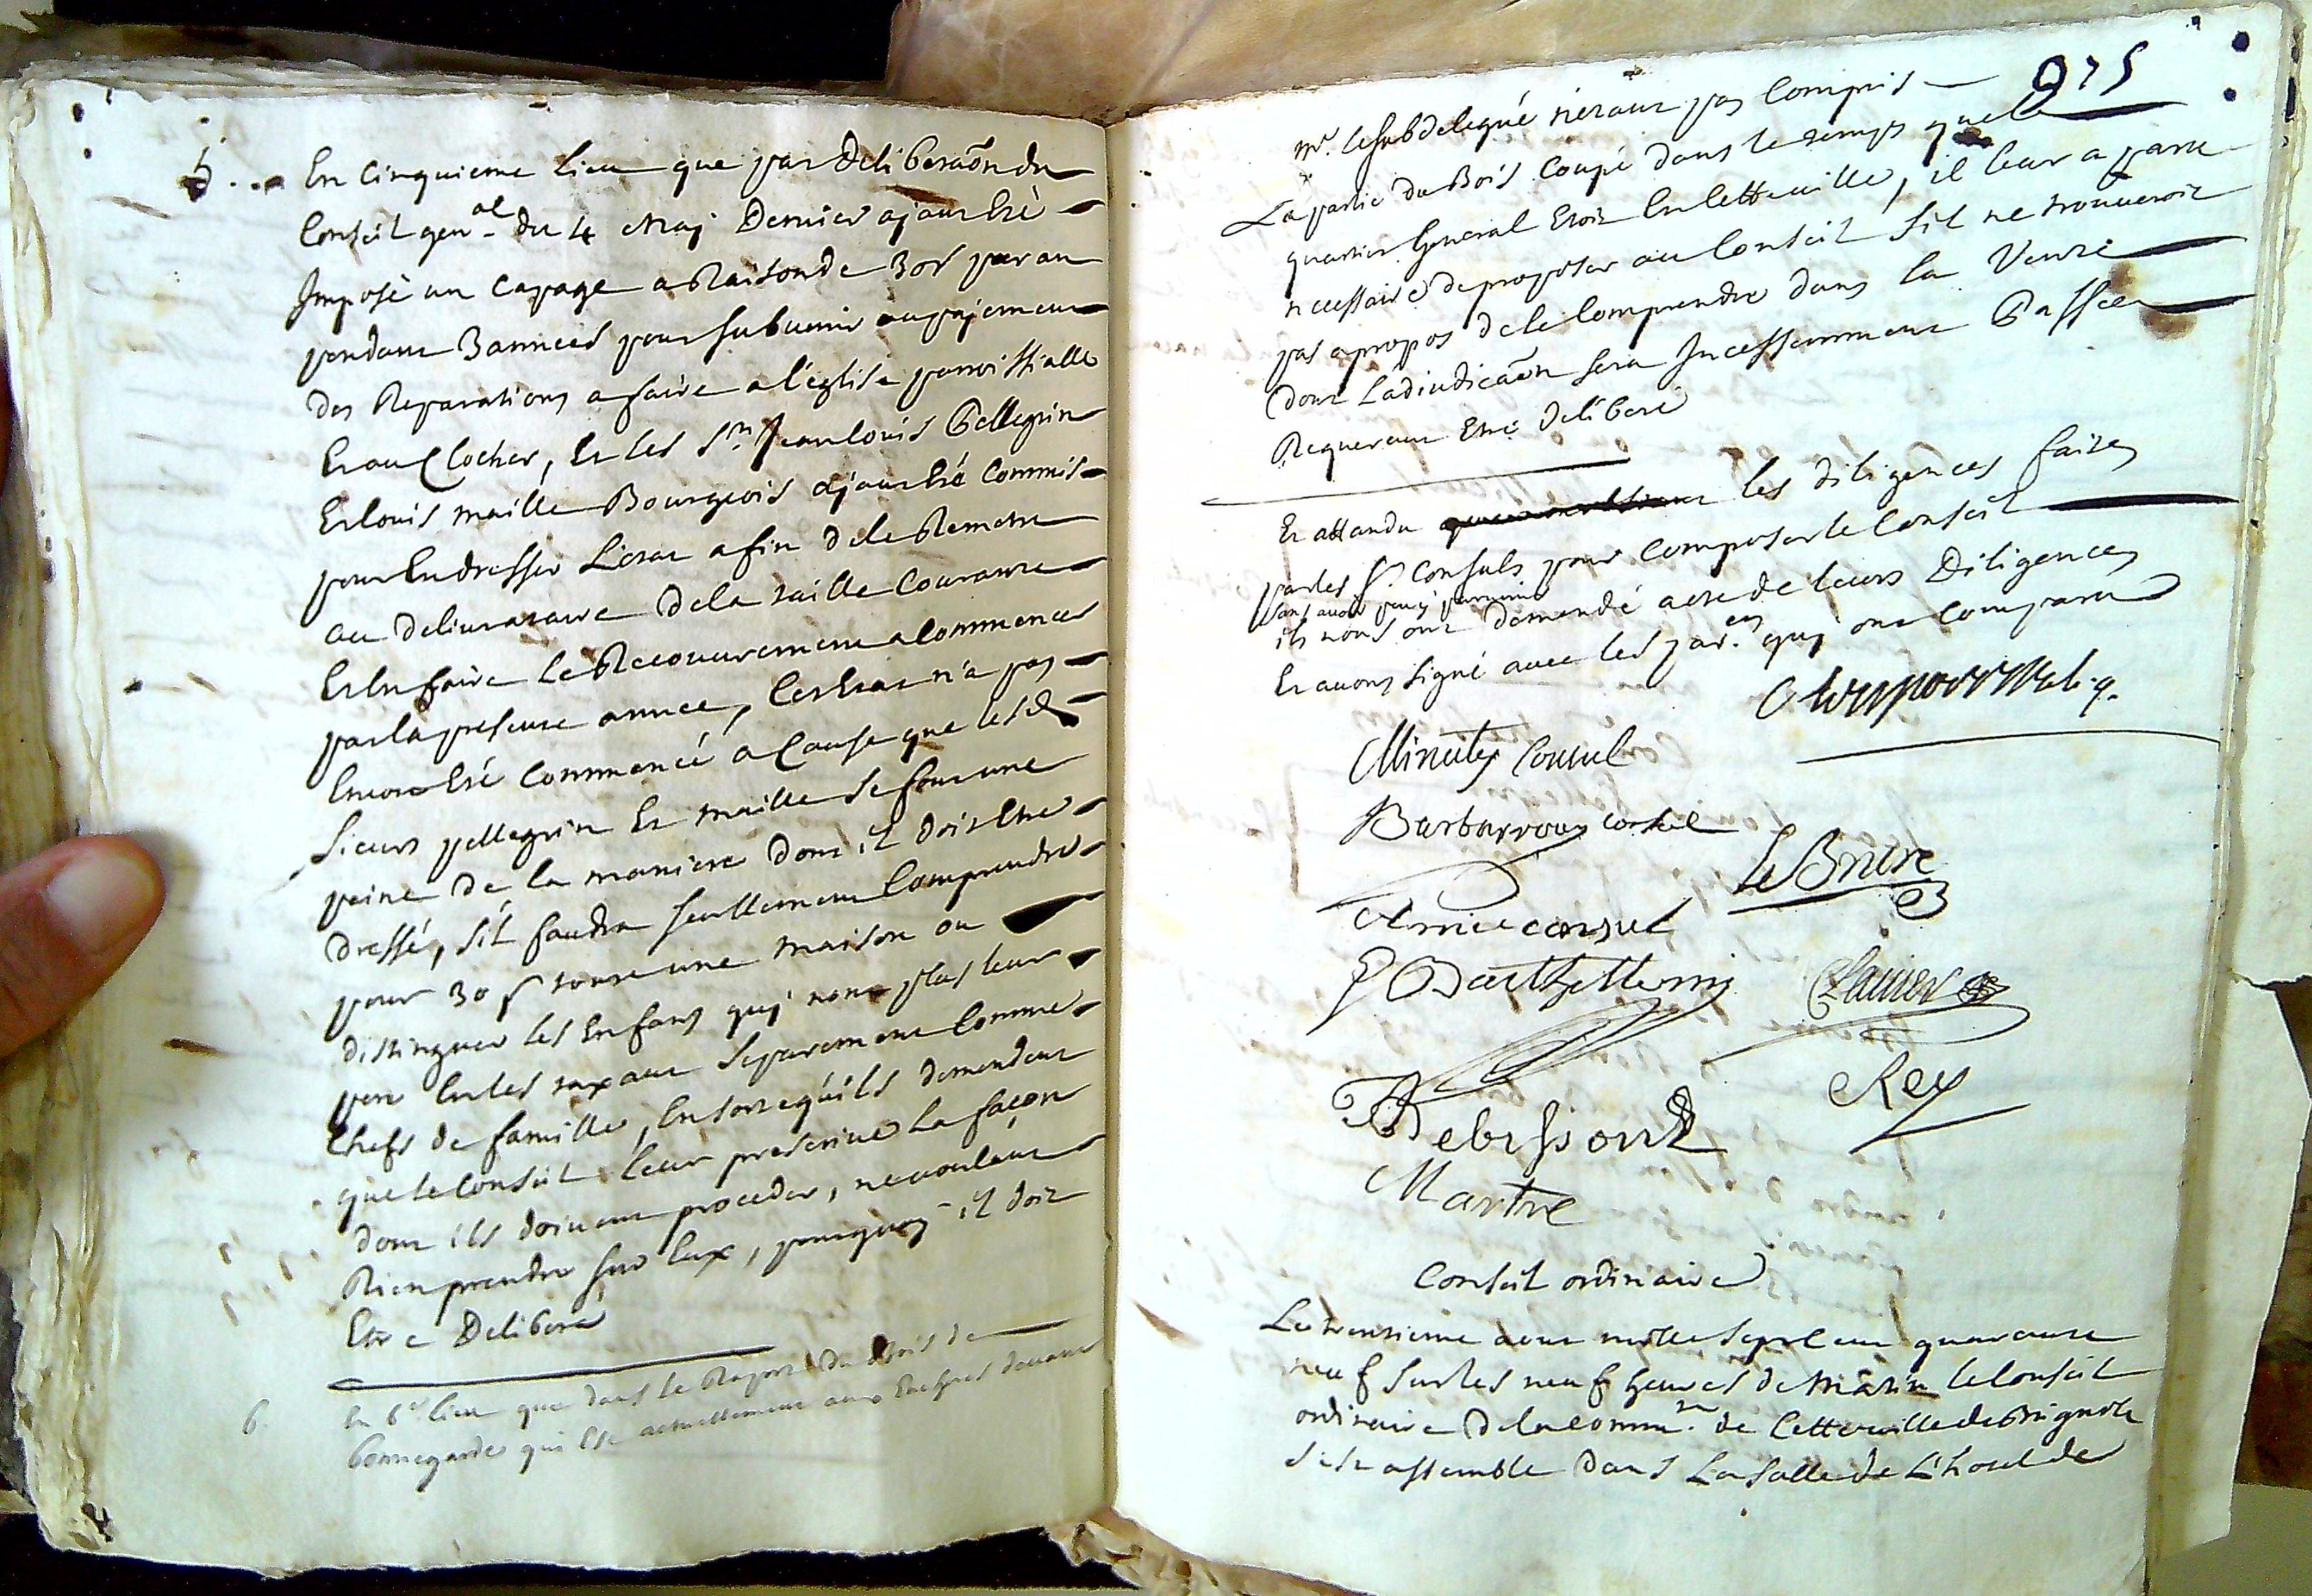 5... En Cinquieme lieu que par Deliberaõn du
Conseil gen.al du 4 May Dernier ajant Eté
Imposé un Capage a Raison de 30s par an
pendant 3 années pour subvenir au pajement
des Reparations a faire a l'eglise parroissialle
Et au Clocher, Et les Srs Jean louis Pellegrin
Et louis maille Bourgeois ajant Eté Commis
pour En dresser L'etat afin de le Remetre
au delivrataire de la taille Courante
Et En faire le Recouvrement a Commencer
par la presente année, Cet Etat n'a pas
Encore Eté Commencé a Cause que lesd
Sieurs pellegrin Et maille se font une
peine de la maniere dont il doit Etre
dressé, s'il faudra seullement Comprendre
pour 30 s toute une maison ou
distinguer les Enfans quj nont plus leur
pere En les taxant separement Comme
Chefs de famille, En sorte qu'ils demandent
que le Conseil leur prescrive la façon
dont ils doivent proceder, ne voulant
Rien prendre sur Eux, pourquoy il doit
Etre Deliberé
6. En 6e lieu que dans le Raport du Bois de
bonnegarde qui Est actuellement aux Encheres devant
975
mr. le subdelegué n'etant pas Compris
La partie du Bois Coupé dans le temps que le
quartier General Etoit En cette ville, il leur a paru
necessaire de proposer au Conseil s'il ne trouveroit
pas apropos de le Comprendre dans la Vente
dont Ladiudicaõn sera Incessamment Passée
Requerant Etre deliberé
Et attandu les diligences faites
par les Srs Consuls pour Composer le Conseil
sans avoir peu y parvenir
ils nous ont demandé acte de leurs Diligences
Et avons signé avec les par.ens quj ont Comparu
Minuty Consul
Barbarroux consul
Le Brere
Amic consul
P Barthellemy
Clavier
Rey
Debissont
Martre
Conseil ordinaire
Le trentieme aout mille sept cent quarante
neuf sur les neuf heures de Matin le Conseil
ordinaire de la Comm.té de Cette ville de Brignole
s'est assemble dans La salle de L'hotel de